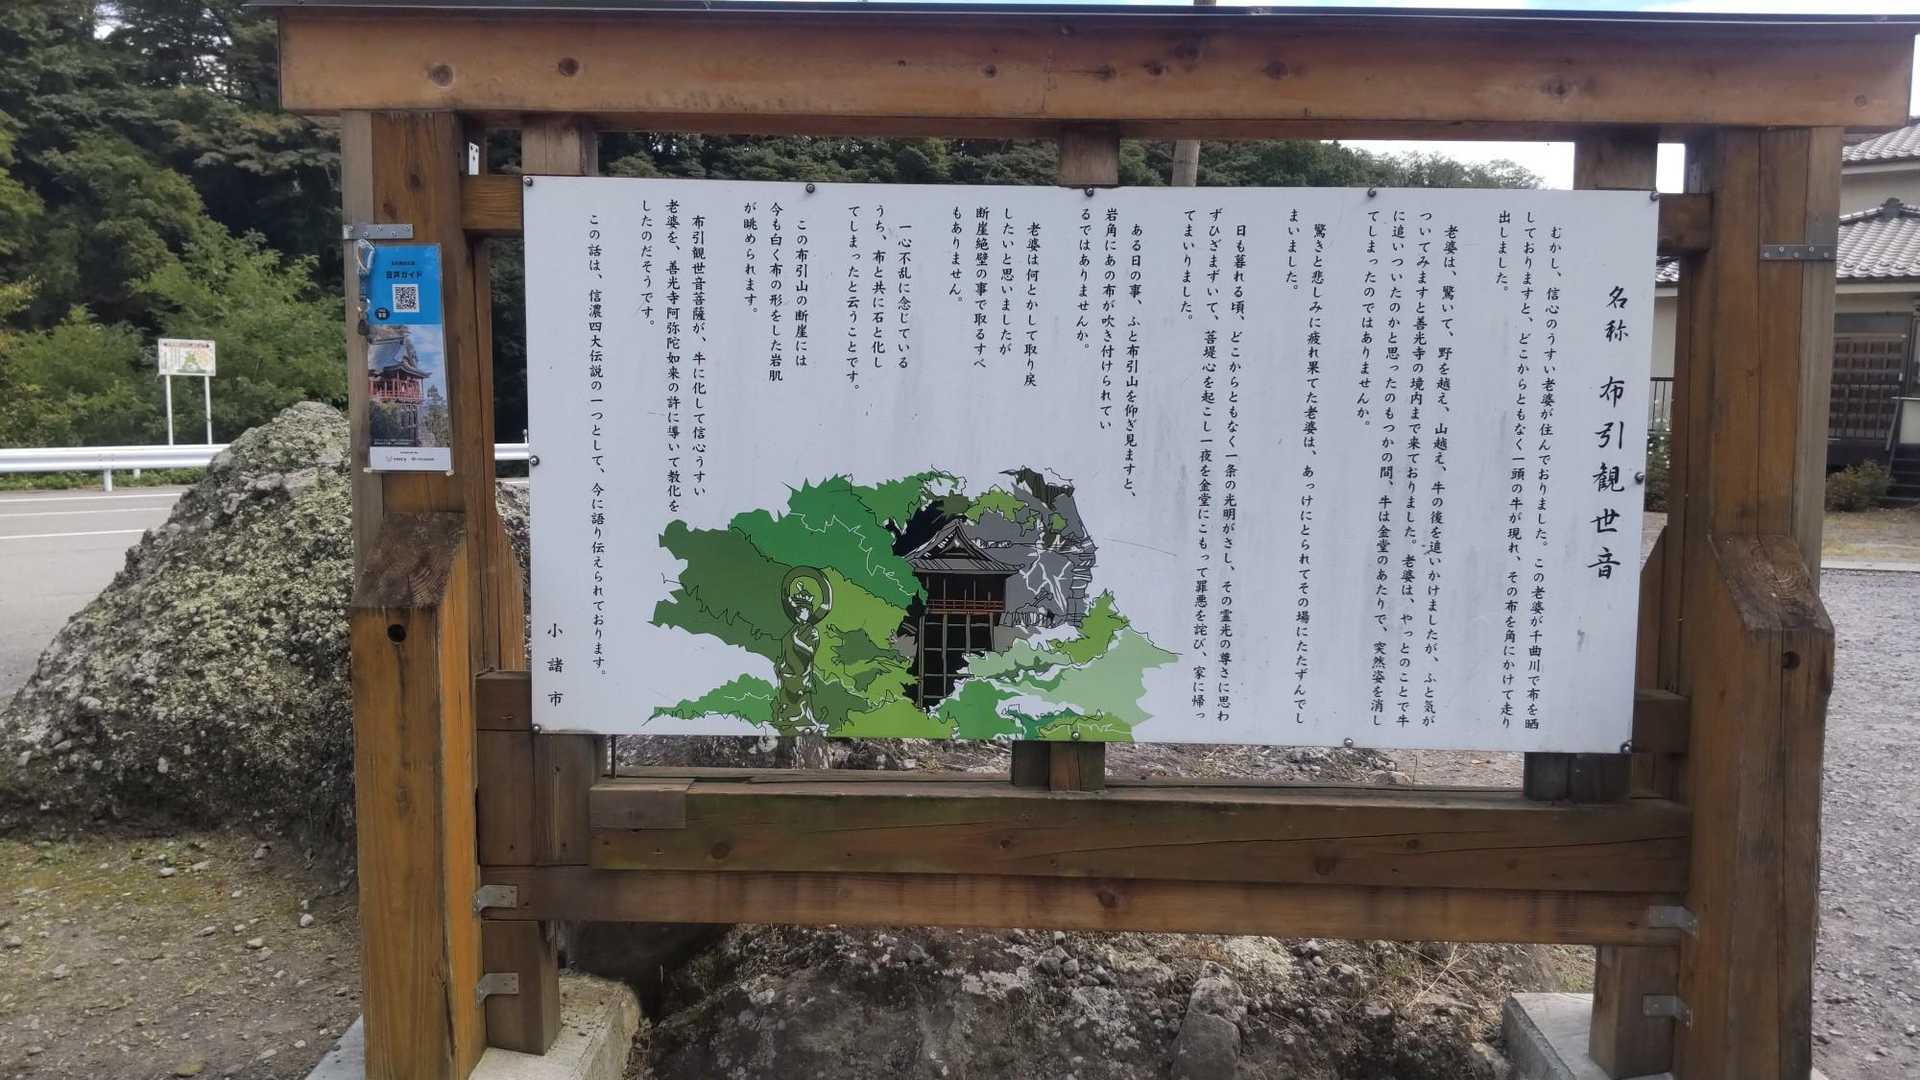 名称　布引観世音
むかし、信心のうすい老婆が住んでおりました。この老婆が千曲川で布を晒
しておりますと、どこからともなく一頭の牛が現れ、その布を角にかけて走り
出しました。
老婆は、驚いて、野を越え、山越え、牛の後を追いかけましたが、ふと気が
ついてみますと善光寺の境内まで来ておりました。老婆は、やっとのことで牛
に追いついたのかと思ったのもつかの間、牛は金堂のあたりで、突然姿を消し
てしまったのではありませんか。
驚きと悲しみに疲れ果てた老婆は、あっけにとられてその場にたたずんでし
まいました。
日も暮れる頃、どこからともなく一条の光明がさし、その霊光の尊さに思わ
ずひざまずいて、菩提心を起こし一夜を金堂にこもって罪悪を詫び、家に帰っ
てまいりました。
ある日の事、ふと布引山を仰ぎ見ますと、
岩角にあの布が吹き付けられてい
るではありませんか。
老婆は何とかして取り戻
したいと思いましたが
断崖絶壁の事で取るすべ
もありません。
一心不乱に念じている
うち、布と共に石と化し
てしまったと云うことです。
この布引山の断崖には
今も白く布の形をした岩肌
が眺められます。
布引観世音菩薩が、牛に化して信心うすい
老婆を、善光寺阿弥陀如来の許に導いて教化を
したのだそうです。
この話は、信濃四大伝説の一つとして、今に語り伝えられております。
小諸市
音声ガイド